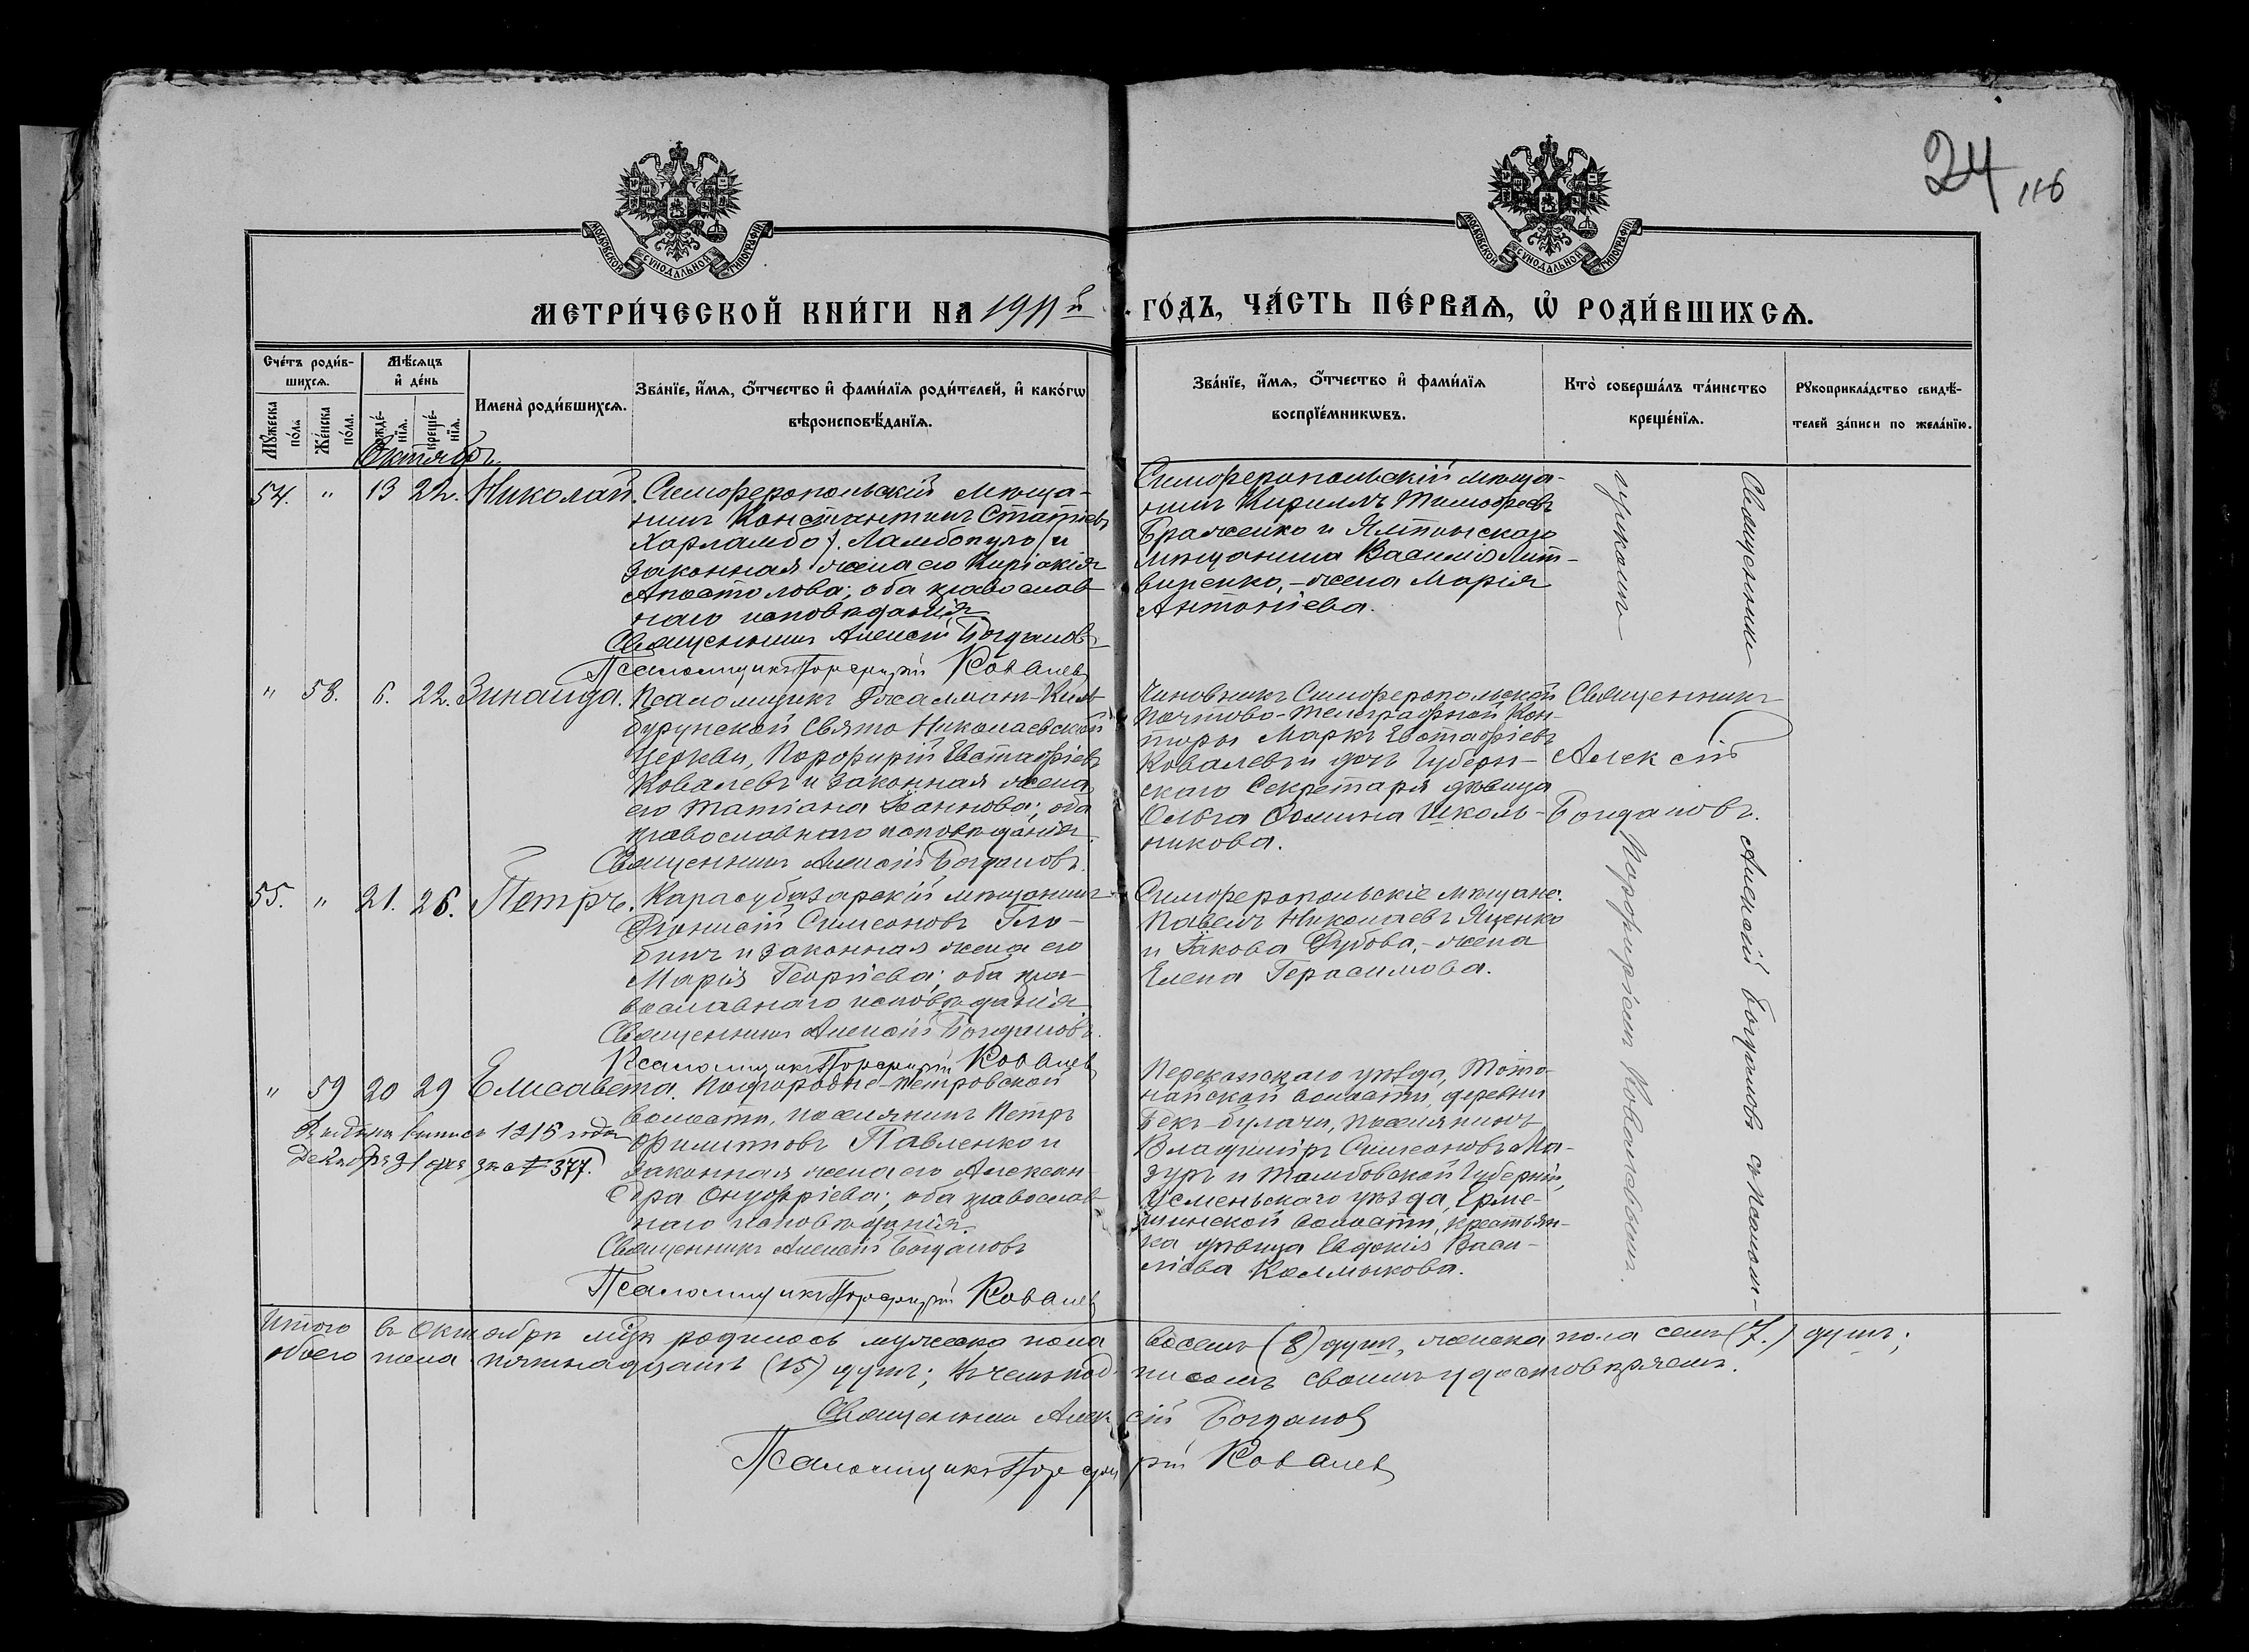 24
116
МОСКОВСКОЙ СѴНОДАЛЬНОЙ ТИПОГРАФІИ
МОСКОВСКОЙ СѴНОДАЛЬНОЙ ТИПОГРАФІИ
МЕТРИ́ЧЕСКОЙ КНИ́ГИ НА 1911 й ГО́ДЪ, ЧА́СТЬ ПЕ́РВАѦ, Ѡ҆ РОДИ́ВШИХСѦ.
Сче́тъ роди́в-
шихсѧ.
Мꙋ́жеска по́ла
Же́нска по́ла.
Мѣ́сѧцъ
и҆ де́нь
рожде́-
нїѧ.
креще́-
нїѧ.
Имена̀ роди́вшихсѧ.
Зва́нїе, и҆́мѧ, ѻ҆́тчество и҆ фами́лїѧ роди́телей, и҆ како́гѡ
вѣроисповѣ́данїѧ.
Зва́нїе, и҆́мѧ, ѻ҆́тчество и҆ фами́лїѧ
воспрїе́мникѡвъ.
Кто̀ соверша́лъ та́инство
креще́нїѧ.
Рꙋкоприкла́дство свидѣ́-
телей за́писи по жела́нїю.
Октябрь.
54. " 13 22. Николай.
Симферопольскій мѣща-
нинъ Константинъ Статіевъ
Харламбо /. Ламбопуло / и
законная жена его Киріакія
Апостолова; оба православ-
наго исповѣданія
Священникъ Алексій Богдановъ
Псаломщикъ Порфирій Ковалев
Симферопольскій мѣща-
нинъ Кириллъ Тимофеевъ
Браженко и Ялтинскаго
мѣщанина Василія Лит-
виненко, - жена Марія
Антоніева.
" 58. 6. 22. Зинаида.
Псаломщикъ Джалман-Кил-
бурунской Свято Николаевской
Церкви, Порфирій Евстафіевъ
Ковалевъ и законная жена
его Татіана Іоаннова; оба
православнаго исповѣданія.
Священникъ Алексій Богдановъ.
Чиновникъ Симферопольской
Почтово-телеграфной Кон-
торы Маркъ Евстафіевъ
Ковалевъ и дочь Губерн-
скаго Секретаря дѣвица
Ольга Фомина Школь-
никова.
Священникъ
Алексій
Богдановъ.
55. " 21. 26. Петръ.
Карасубазарскій мѣщанинъ
Діонисій Симеоновъ Гло-
бинъ и законная жена его
Марія Георгіева; оба пра-
вославнаго исповѣданія.
Священникъ Алексій Богдановъ.
Псаломщикъ Порфирій Ковалев
Симферопольскіе мѣщане:
Павелъ Николаевъ Яценко
и Іакова Дубова, - жена
Елена Герасимова.
" 59 20 29 Елисавета.
Выдана выпись 1916 года
Декабря 31 дня за № 377.
Подгородне-Петровской
волости, поселянинъ Петръ
Филипповъ Павленко и
законная жена его Алексан-
дра Онуфріева; оба православ-
наго исповѣданія.
Священникъ Алексій Богдановъ
Псаломщикъ Порфирій Ковалев
Перекопскаго уѣзда, Тото-
найской волости, деревни
Бек-Булачи, поселянинъ
Владиміръ Симеоновъ Ма-
зуръ и Тамбовской Губерніи,
Усменьскаго уѣзда,
волости, крестьян-
ка дѣвица Евдокія Васи-
ліева Калмыкова.
Священникъ Алексій Богдановъ съ псалом-
щикомъ Порфиріемъ Ковалевымъ.
Итого въ Октябрѣ м-цѣ родилось мужеска пола восемь (8) душъ, женска пола семь (7.) душъ;
обоего пола пятнадцать (15) душъ; въ чемъ подписомъ своимъ удостовѣряемъ.
Священникъ Алексій Богданов
Псаломщикъ Порфирій Ковалев